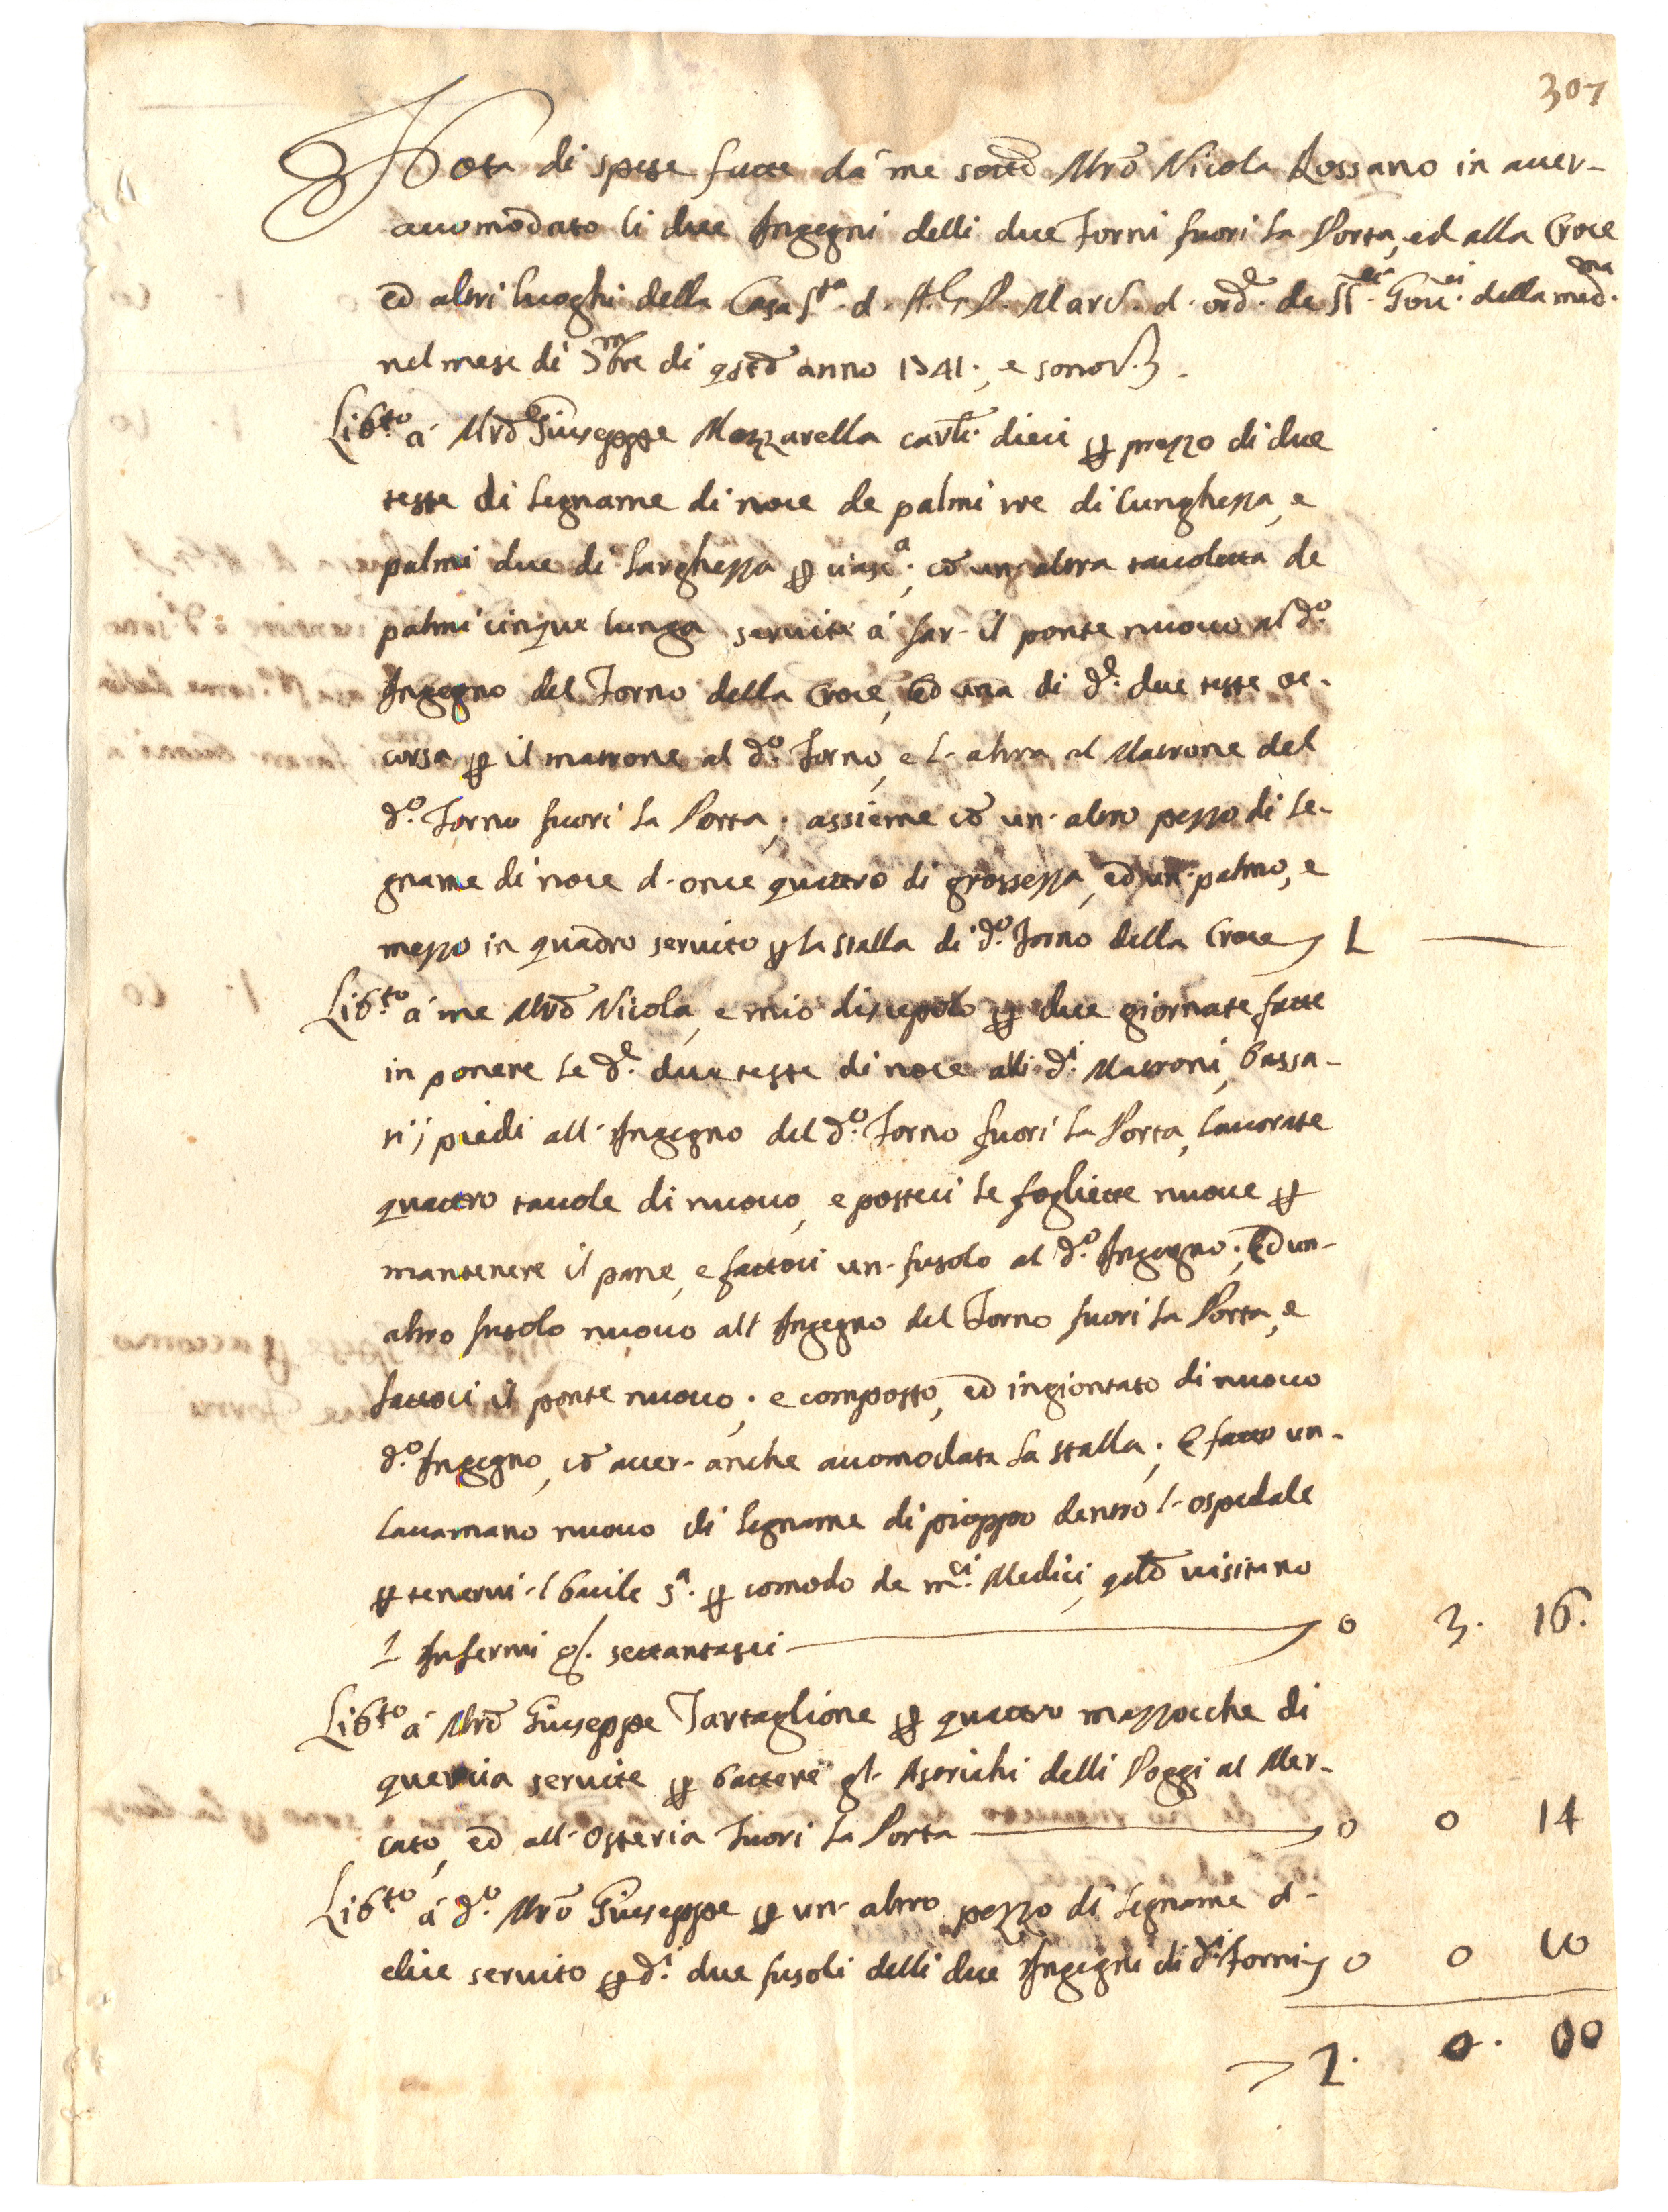 307
Nota di spese fatte da me sottō Mrō Nicola Rossano in aver-
accomodato li due Ingegni delli due Forni fuori la Porta, ed alla Croce
ed altri luoghi della Casa Sta. d. A.G.P. Marc. d. ordē. de SSri. Gouri. della medma.
nel mese di Xmbre di qstō anno 1741., e sono V.3.
Libto. á Mrō Giuseppe Mozzarella carli. dieci p prezzo di due
teste di legname di noce de palmi tre di lunghezza, e
palmi due di larghezza p ciasca., cō un'altra tauoletta de
palmi cinque lunga seruite á far- il ponte nuouo al do.
Ingegno del Forno della Croce, ed una di de. due teste oc-
corsa p il matrone al do. Forno, e l- altra al Matrone del
do. Forno fuori la Porta, assieme cō un- altro pezzo di le-
gname di noce d- once quattro di grossezza, ed un- palmo, e
mezzo in quadro seruito p la stalla di do. Forno della Croce 1 —
Libto. á me Mrō Nicola, e mio discepolo p due giornate fatte
in ponere le de. due teste di noce alli di. Matroni, bassa-
ti, j piedi all- Ingegno del do. Forno fuori la Porta, lauorate
quattro tauole di nuouo, e posteci le fogliette nuoue p
mantenere il pane, e fattoci un- fusolo al do. Ingegno; Ed un-
altro fusolo nuouo all- Ingegno del Forno fuori la Porta, e
fattoci il ponte nuouo; e composto, ed ingiontato di nuouo
do. Ingegno, cō auer- anche accomodata la stalla; E fatto un-
lauamano nuouo di legname di pioppo dentro l- ospedale
p tenerui- l bacile Sa. p comodo de mci. Medici, qdō uisitano
l- Infermi gr. settantasei 0 3. 16.
Libto. á Mrō Giuseppe Tartaglione p quattro mazzocche di
quercia seruite p battere gl- Astrichi delli Poggi al Mer-
cato, ed all- Osteria fuori la Porta 0 0 14
Libto. á do. Mrō Giuseppe p un- altro pezzo di legname d-
elice seruito p di. due fusoli delli due Ingegni di di. Forni 0 0 10
2. 0. 00